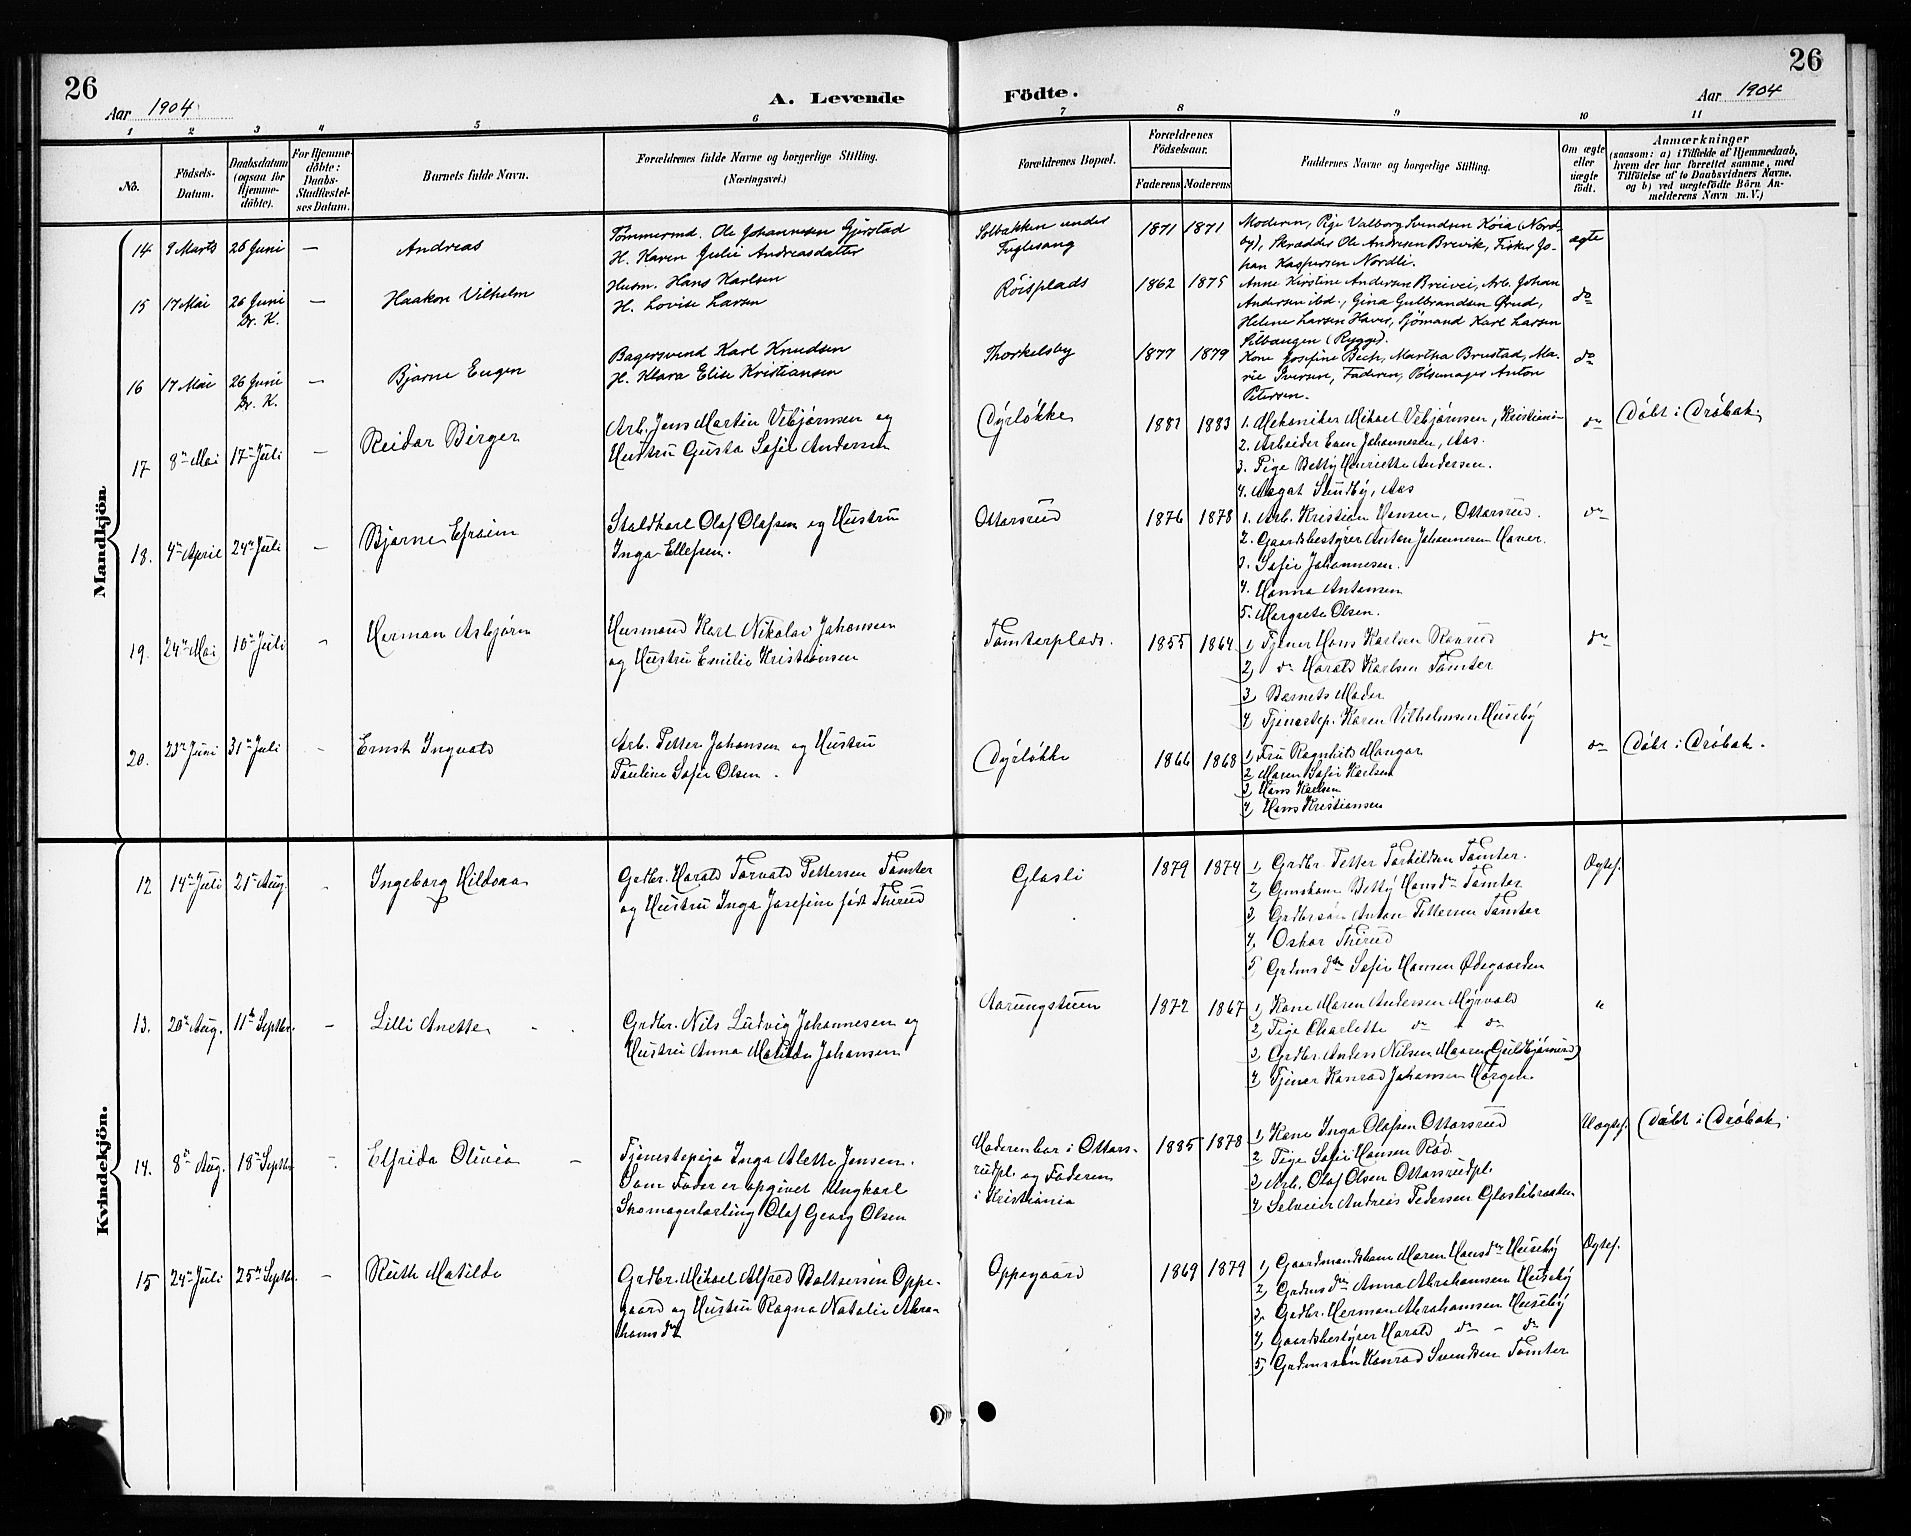 26
Aar 1904
A. Levende Födte.
26
Aar 1904
1 2 3 4 5 6 7 8 9 10 11
No.
Födsels-
Datum.
Daabsdatum
(ogsaa for
Hjemme-
döbte).
For Hjemme-
döbte:
Daabs-
Stadfæstel-
ses Datum.
Barnets fulde Navn.
Forældrenes fulde Navne og borgerlige Stilling.
(Næringsvei.)
Forældrenes Bopæl.
Forældrenes
Födselsaar.
Faderens Moderens
Faddernes Navne og borgerlige Stilling.
Om ægte
eller
uægte
födt.
Anmærkninger
(saasom: a) i Tilfælde af Hjemmedaab,
hvem der har forrettet samme, med
Tilföielse af to Daabsvidners Navne,
og b) ved uægtefödte Börn An-
melderens Navn m. V.)
Mandkjön
14 9 Marts 26 Juni — Andreas
Tømmermd. Ole Johannesen Gjerstad
H. Karen Julie Andreasdatter
Solbakken under
Fuglesang
1871 1871
Moderen, Pige Valborg Svendsen Köia (Nord-
by), Skrædder Ole Andresen Brevik, Fisker Jo-
han Kaspersen Nordli.
ægte
15 17 Mai 26 Juni — Haakon Vilhelm
Dr. K.
Husm. Hans Karlsen
H. Lovise Larsen
Röisplads
1862 1875
Anne Kirstine Andersen Breivei, Arb. Johan
Andersen ibd., Gina Gulbrandsen Ørud,
Helene Larsen Haver, Sjömand Karl Larsen
(Rygge).
do
16 17 Mai 26 Juni — Bjarne Eugen
Dr. K.
Bagersvend Karl Knudsen
H. Klara Elise Kristiansen
Thorkelsby
1877 1879
Kone Josefine Bech, Martha Brustad, Ma-
rie Iversen, Faderen, Pølsemager Anton
Petersen.
do
17 8de Mai 17de Juli — Reidar Birger
Arb. Jens Martin Vebjørnsen og
Hustru Gusta Sofie Andersen
Dyrløkke
1881 1883
1. Mekaniker Mikael Vebjørnsen, Kristiania
2. Arbeider Even Johannesen, Aas.
3. Pige Betty Henriette Andersen.
4. Aagot Sundby, Aas
do
Døbt i Drøbak.
18. 4de April 24de Juli — Bjarne Efraim
Staldkarl Olaf Olafsen og Hustru
Inga Ellefsen.
Ottarsrud
1876 1878
1. Arb. Kristian Hansen, Ottarsrud.
2. Gaardsbestyrer Anton Johannesen Haver.
3. Sofie Johannesen.
4. Hanna Antonsen
5. Margrete Olsen.
do
19. 24de Mai 10de Juli — Herman Asbjørn
Husmand Karl Nikolai Johansen
og Hustru Emilie Kristiansen
Tomterplads.
1855 1864
1, Tjener Hans Karlsen
2, do Harald Karlsen Tomter
3, Barnets Moder
4, Tjenestep. Karen Vilhelmsen Huseby
do
20. 23de Juni 31te Juli — Ernst Ingvald
Arb. Petter Johansen og Hustru
Pauline Sofie Olsen.
Dyrløkke
1866 1868
1, Fru Ragnhild Mangor
2 Maren Sofie Karlsen
3, Hans Karlsen
4, Hans Kristiansen
do
Døbt i Drøbak.
Kvindekjön.
12 14de Juli 21de Aug. — Ingeborg Hildora
Grdbr. Harald Torvald Pettersen Tomter
og Hustru Inga Josefine født Thirud
Glasli
1879 1874
1, Grdbr. Petter Torkildsen Tomter.
2, Betty Hansdtr Tomter
3, Grdbrsøn Anton Pettersen Tomter
4, Oskar Thirud
5, Grdmsdtr Sofie Hansen Ødegaarden
Ægtef.
13. 20de Aug. 11te Septbr. — Lilli Anette
Grdbr. Nils Ludvig Johannesen og
Hustru Anna Matilde Johansen
Aarungstuen
1872 1867
1, Kone Maren Andersen Myrvold
2, Pige Charlotte do do
3, Grdbr. Anders Nilsen Maaren (Guldbjørnrud)
4, Tjener Konrad Johansen Horgen.
"
14. 8de Aug. 18de Septbr — Elfrida Olivia
Tjenestepige Inga Alette Jensen.
Som Fader er opgivet Ungkarl
Skomagerlærling Olaf Georg Olsen
Moderen bor i Ottars-
rudpl. og Faderen
i Kristiania
1885 1878
1, Kone Inga Olafsen Ottarsrud
2 Pige Sofie Hansen Rød.
3, Arb. Olaf Olsen Ottarsrudpl.
4, Selveier Andreas Pedersen Glaslibraaten
Uægtef.
Døbt i Drøbak.
15 24de Juli 25de Septbr. — Ruth Matilde
Grdbr. Mikael Alfred Baltsersen Oppe-
gaard og Hustru Ragna Natalie Abra-
hamsdtr
Oppegaard
1869 1879
1, Gaardmandskone Maren Hansdtr Huseby
2, Grdmsdtr Anna Abrahamsen Huseby
3, Grdbr. Herman Abrahamsen Huseby
4, Gaardsbestyrer Harald do — do
5, Grdmssøn Konrad Svendsen Tomter
Ægtef.